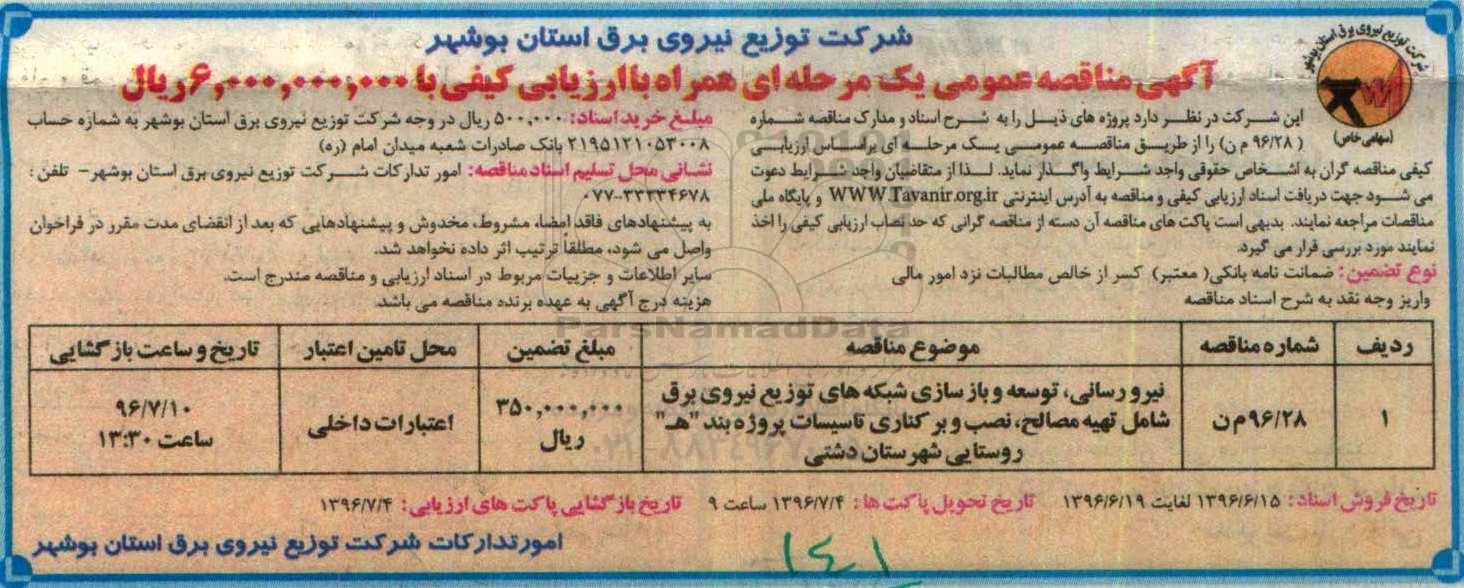 شرکت توزیع نیروی برق استان بوشهر
شرکت توزیع نیروی برق استان بوشهر
(سهامی خاص)
آگهی مناقصه عمومی یک مرحله ای همراه با ارزیابی کیفی با ۶,۰۰۰,۰۰۰,۰۰۰ ریال
این شرکت در نظر دارد پروژه های ذیل را به شرح اسناد و مدارک مناقصه شماره
(۹۶/۲۸ م ن) را از طریق مناقصه عمومی یک مرحله ای براساس ارزیابی
کیفی مناقصه گران به اشخاص حقوقی واجد شرایط واگذار نماید. لذا از متقاضیان واجد شرایط دعوت
می شود جهت دریافت اسناد ارزیابی کیفی و مناقصه به آدرس اینترنتی WWW.Tavanir.org.ir و پایگاه ملی
مناقصات مراجعه نمایند. بدیهی است پاکت های مناقصه آن دسته از مناقصه گرانی که حد نصاب ارزیابی کیفی را اخذ
نمایند مورد بررسی قرار می گیرد.
نوع تضمین: ضمانت نامه بانکی( معتبر) کسر از خالص مطالبات نزد امور مالی
واریز وجه نقد به شرح اسناد مناقصه
مبلغ خرید اسناد: ۵۰۰,۰۰۰ ریال در وجه شرکت توزیع نیروی برق استان بوشهر به شماره حساب
۲۱۹۵۱۲۱۰۵۳۰۰۸ بانک صادرات شعبه میدان امام (ره)
نشانی محل تسلیم اسناد مناقصه: امور تدارکات شرکت توزیع نیروی برق استان بوشهر- تلفن :
۰۷۷-۳۳۳۳۴۶۷۸
به پیشنهادهای فاقد امضا، مشروط، مخدوش و پیشنهادهایی که بعد از انقضای مدت مقرر در فراخوان
واصل می شود، مطلقاً ترتیب اثر داده نخواهد شد.
سایر اطلاعات و جزییات مربوط در اسناد ارزیابی و مناقصه مندرج است.
هزینه درج آگهی به عهده برنده مناقصه می باشد.
ParsNamadData
ردیف شماره مناقصه موضوع مناقصه مبلغ تضمین محل تامین اعتبار تاریخ و ساعت بازگشایی
۱ ۹۶/۲۸م ن نیرو رسانی، توسعه و بازسازی شبکه های توزیع نیروی برق
شامل تهیه مصالح، نصب و برکناری تاسیسات پروژه بند "هـ"
روستایی شهرستان دشتی
۳۵۰,۰۰۰,۰۰۰
ریال
اعتبارات داخلی
۹۶/۷/۱۰
ساعت ۱۳:۳۰
تاریخ فروش اسناد: ۱۳۹۶/۶/۱۵ لغایت ۱۳۹۶/۶/۱۹ تاریخ تحویل پاکت ها: ۱۳۹۶/۷/۴ ساعت ۹ تاریخ بازگشایی پاکت های ارزیابی: ۱۳۹۶/۷/۴
امور تدارکات شرکت توزیع نیروی برق استان بوشهر
۱۴۱